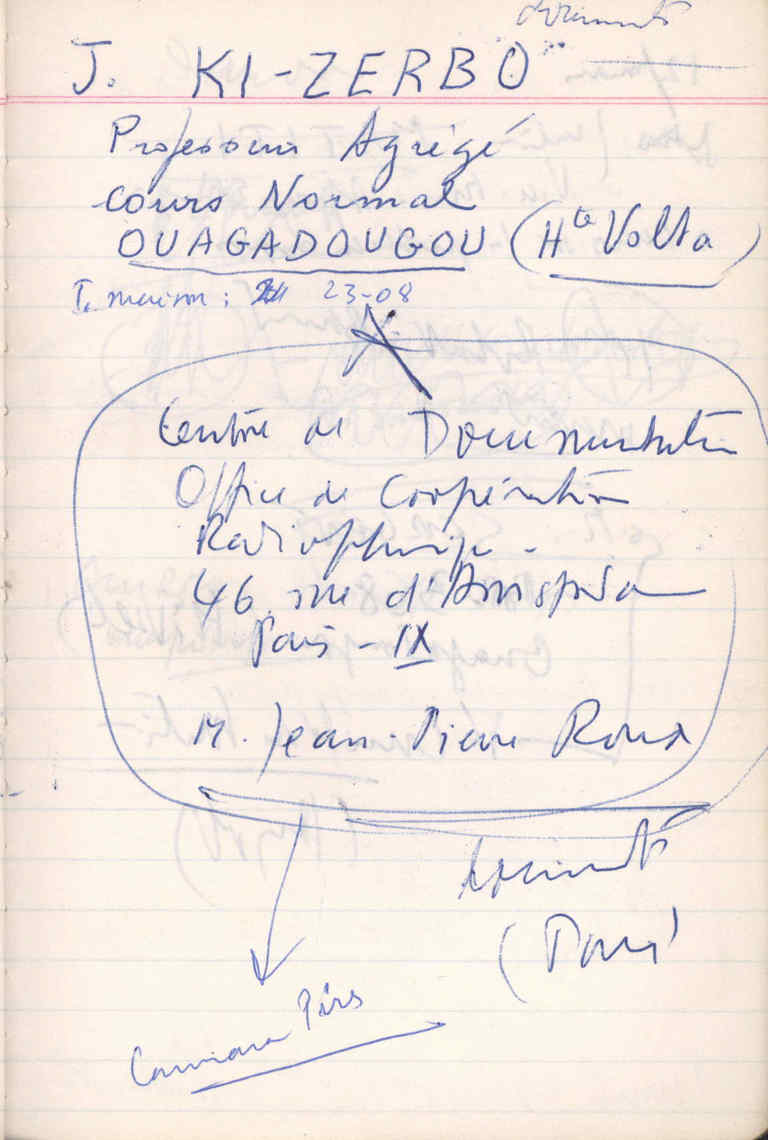 documents
J. KI-ZERBO
Professeur Agrégé
cours Normal
OUAGADOUGOU (Hte Volta)
T. maison : 23-08
Centre de Documentation
Office de Coopération
Radiophonique -
46, rue d'Amsterdam
Paris - IX
M. Jean-Pierre Roux
documents
(Paris)
Camara